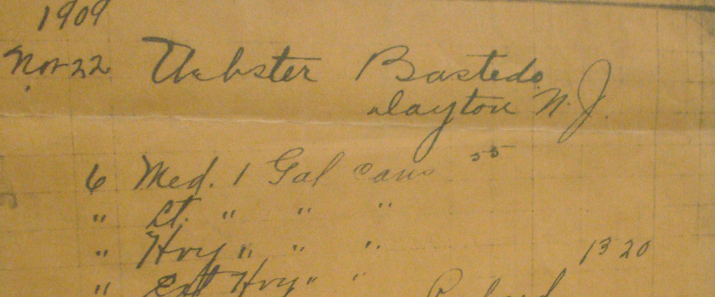 1909
Nov 22 Webster Bastedo
Dayton N.J.
6 Med. 1 Gal cans 55
" Lt. " " "
" Hvy " " " 13 20
" Ext Hvy " "